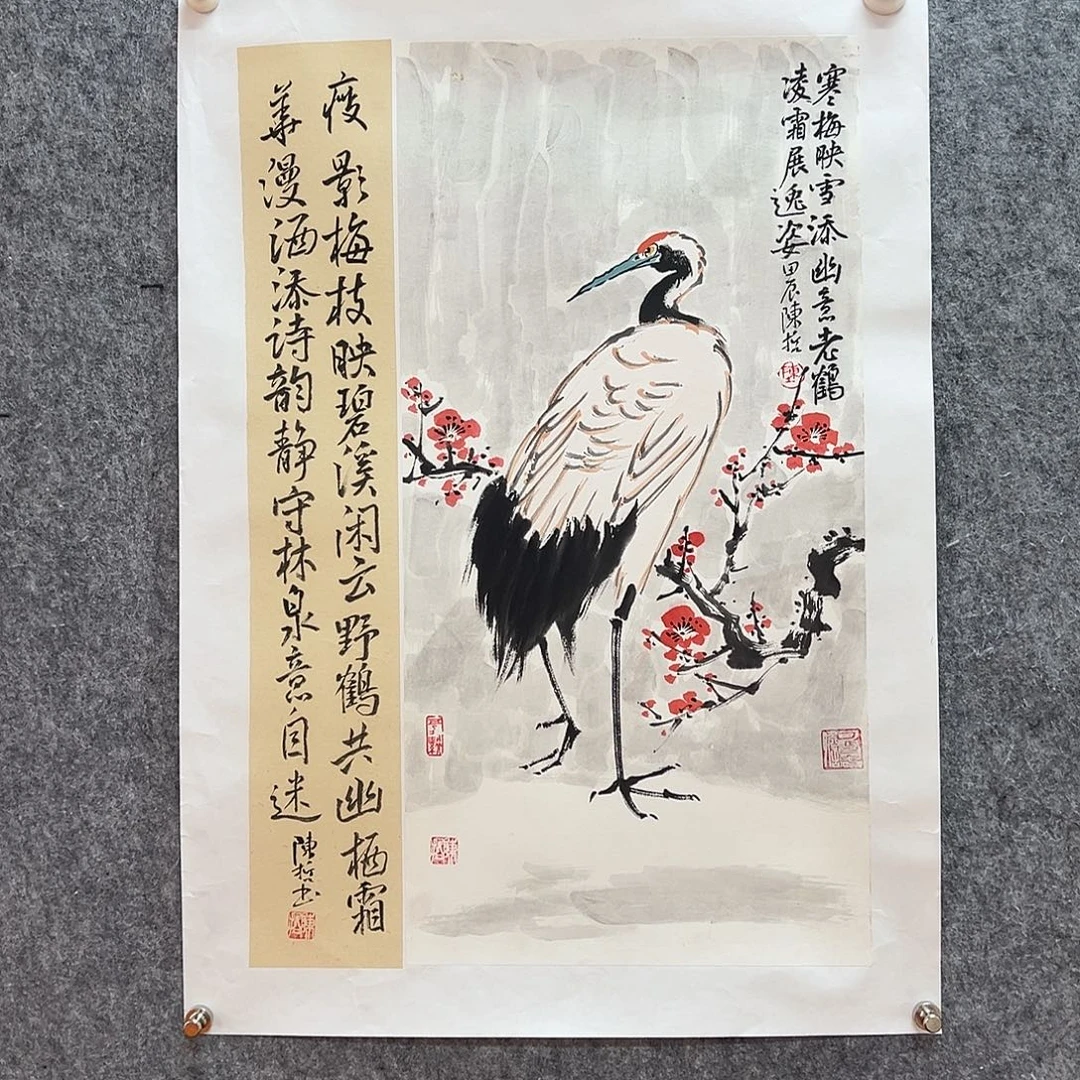 寒梅映雪添幽意老鶴
凌霜展逸姿甲辰陳哲
瘦影梅枝映碧溪闲云野鶴共幽栖霜
華漫洒添诗韵静守林泉意自迷
陳哲书